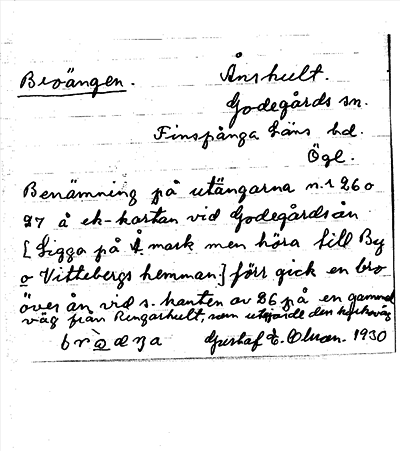 Broängen. Ånshult.
Godegårds sn.
Finspånga läns hd.
Ögl.
Benämning på utängarna n:r 26 o
27 å ek-kartan vid Godegårdsån
[Ligga på Å. mark men höra till By
o Vittebergs hemman.] förr gick en bro
över ån vid s. kanten av 26 på en gammal
väg från Ringarhult, som utgjorde den kyrkväg
Gustaf E. Olson. 1930